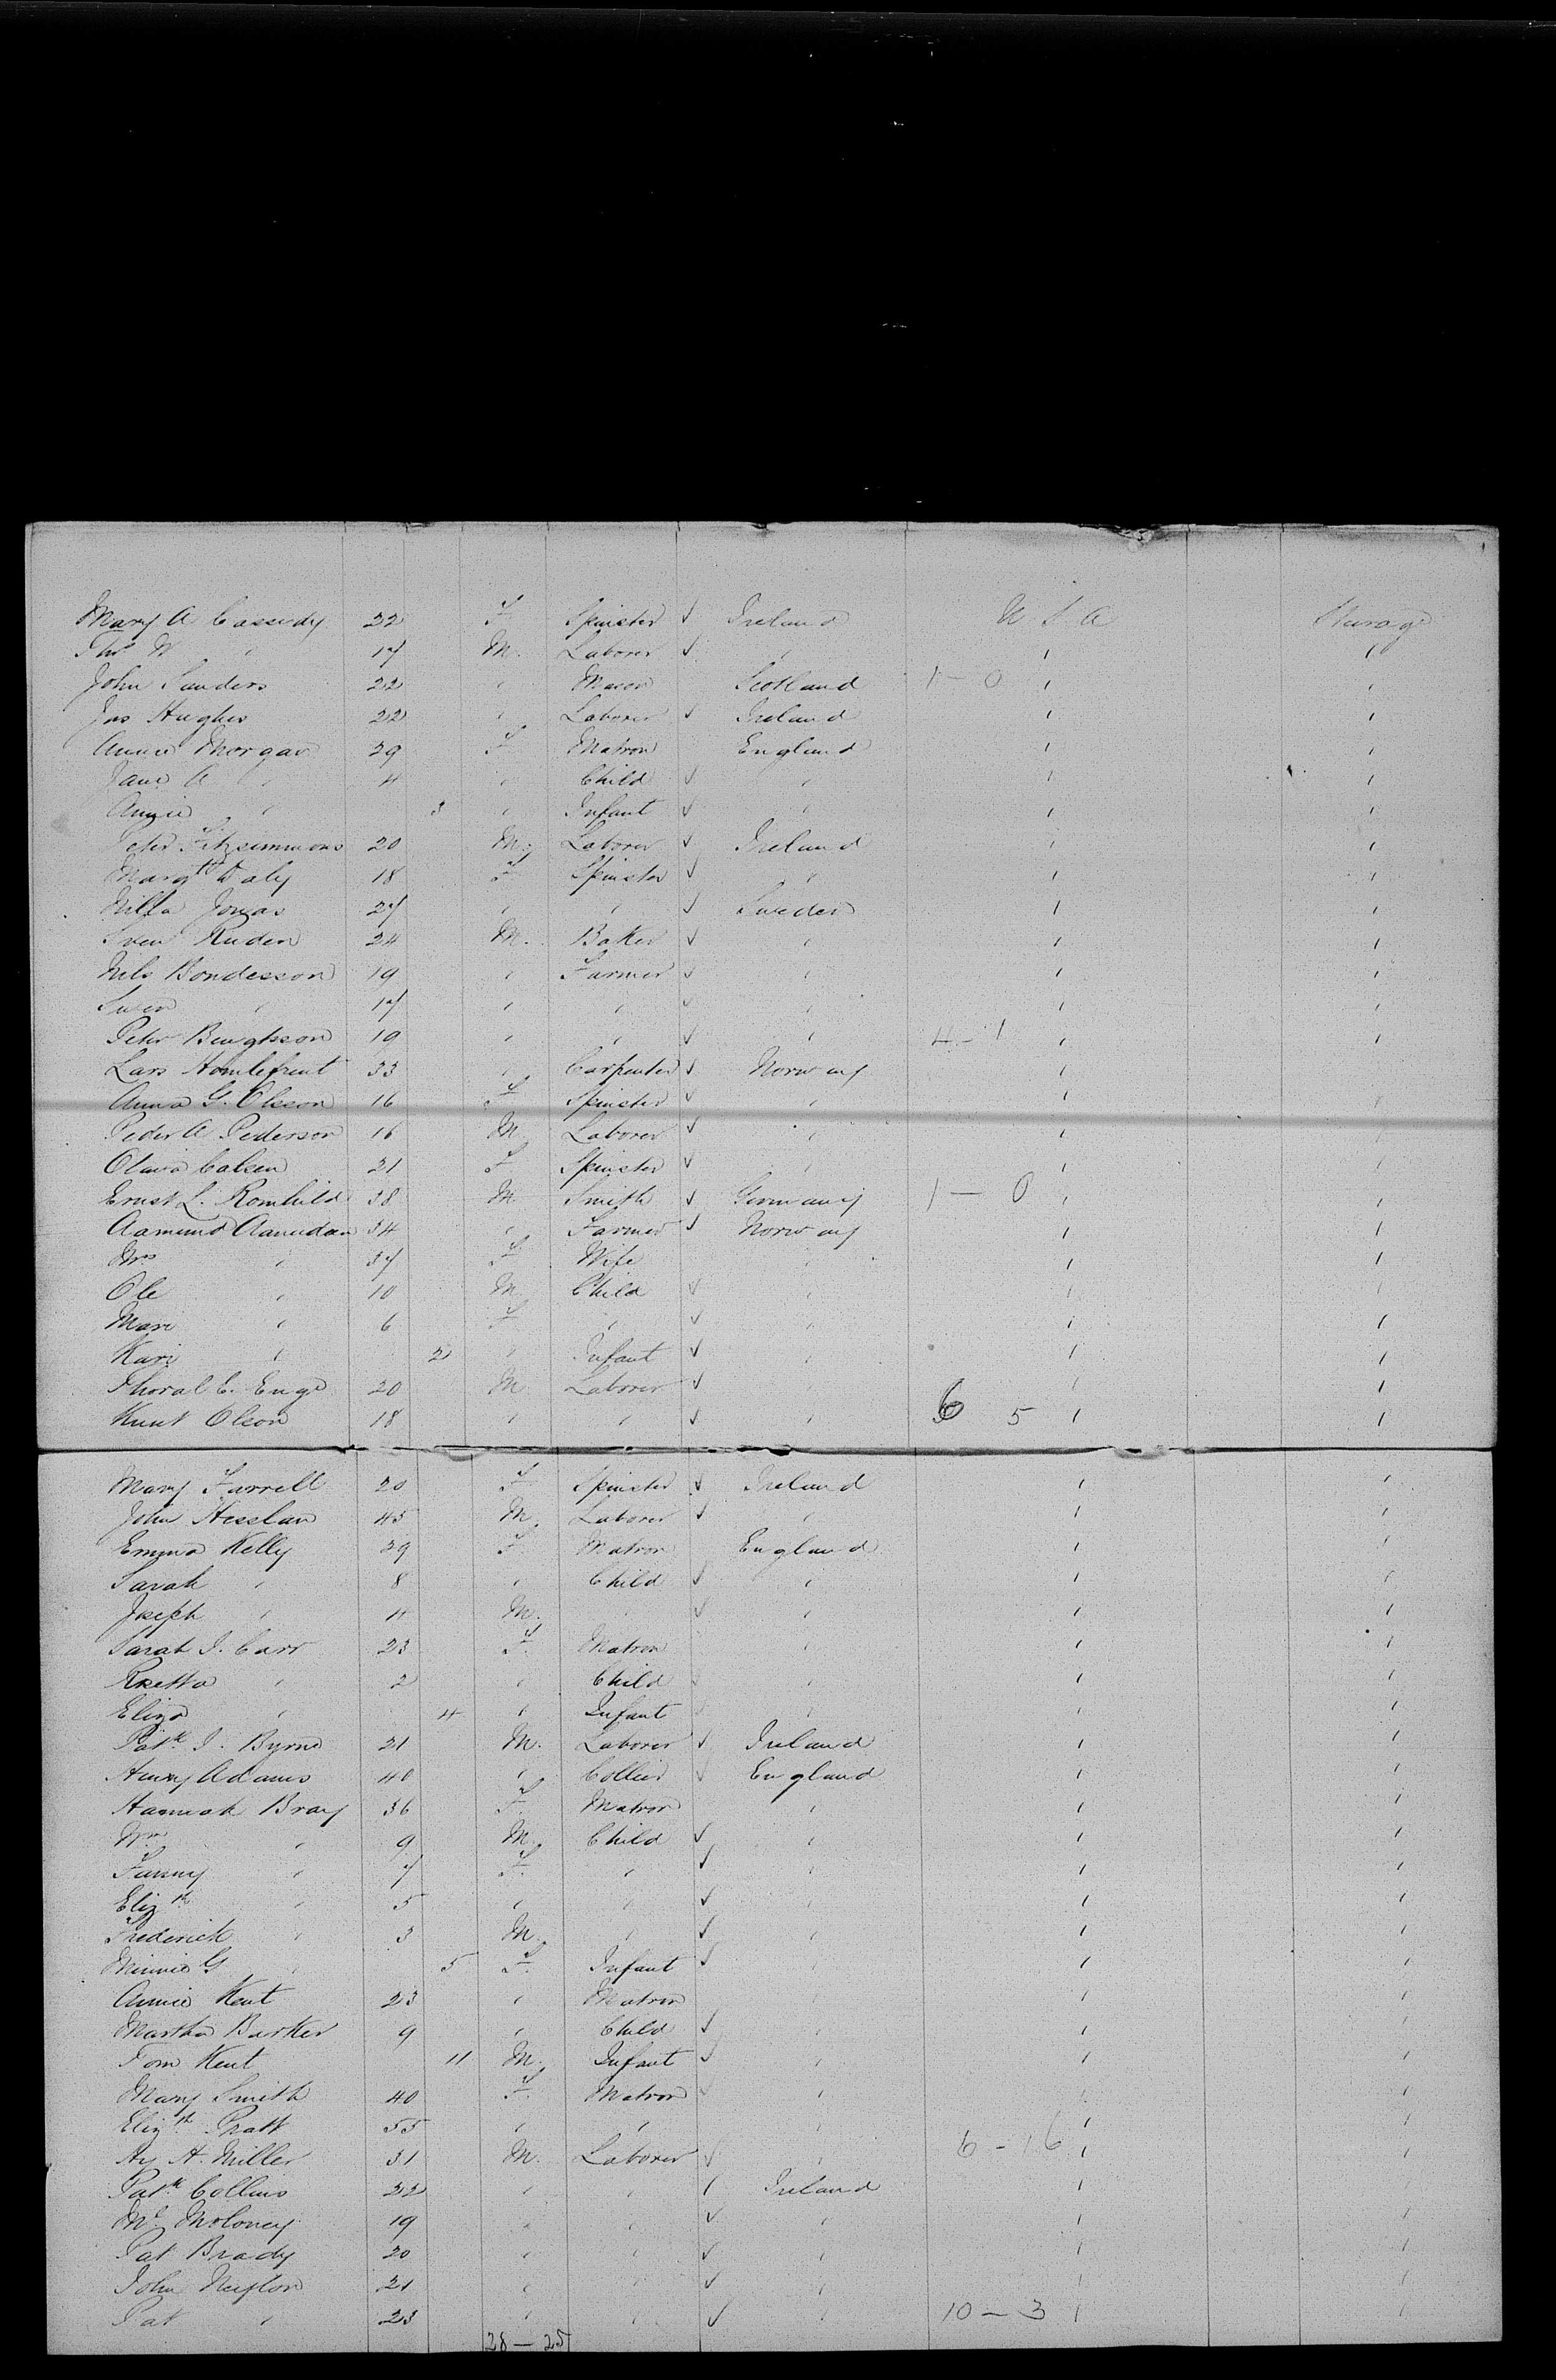 Mary A Cassidy 22 F Spinster ✓ Ireland U S A Steerage
Thos W " 17 M. Laborer ✓ " " "
John Sanders 22 " Mason Scotland 1 - 0 " "
Jas Hughes 22 " Laborer ✓ Ireland " "
Annie Morgan 29 F Matron England " "
Jane A " 4 " Child ✓ " " "
Annie " 3 " Infant ✓ " " "
Peter Fitzsimmons 20 M. Laborer ✓ Ireland " "
Margt Daly 18 F Spinster ✓ " " "
Nilla Jonas 27 " " ✓ Sweden " "
Sven Ruden 24 M. Baker ✓ " " "
Nils Bondesson 19 " Farmer ✓ " " "
Swen " 17 " " ✓ " " "
Peter Bengtsson 19 " " ✓ " 4 - 1 " "
Lars 33 " Carpenter ✓ Norway " "
Anna G. Olsson 16 F Spinster ✓ " " "
Peder A Pederson 16 M Laborer ✓ " " "
Olava 21 F Spinster ✓ " " "
Ernst L. Romhild 38 M Smith ✓ Germany 1 - 0 " "
Aamund 34 " Farmer ✓ Norway " "
Mrs " 37 F Wife " " "
Ole " 10 M Child ✓ " " "
Mari " 6 F " ✓ " " "
Kari " 2 " Infant ✓ " " "
Thoral E. Enge 20 M Laborer ✓ " " "
Knut Olson 18 " " ✓ " 6 5 " "
Mary Farrell 20 F Spinster ✓ Ireland " "
John Hesslan 45 M Laborer ✓ " " "
Emma Kelly 29 F Matron England " "
Sarah " 8 " Child ✓ " " "
Joseph " 4 M. " ✓ " " "
Sarah J. Carr 23 F. Matron " " "
Rosetta " 2 " Child ✓ " " "
Eliza " 4 " Infant ✓ " " "
Patk J. Byrne 21 M. Laborer ✓ Ireland " "
Henry Adams 40 " Collier ✓ England " "
Hannah Bray 36 F. Matron " " "
Wm " 9 M. Child ✓ " " "
Fanny " 7 F. " ✓ " " "
Elizth " 5 " " ✓ " " "
Frederick " 3 M. " ✓ " " "
Minnie G " 5 F. Infant ✓ " "
Annie Kent 23 " Matron " " "
Martha Barker 9 " Child ✓ " " "
Tom Kent 11 M. Infant ✓ " " "
Mary Smith 40 F. Matron ✓ " " "
Elizth Pratt 55 " " " " "
Hy H. Miller 31 M. Laborer ✓ " 6 - 16 " "
Patk Collins 22 " " ✓ Ireland " "
Ml Moloney 19 " " ✓ " " "
Pat Brady 20 " " ✓ " " "
John 21 " " ✓ " " "
Pat " 23 " " ✓ " 10 - 3 " "
28 - 25